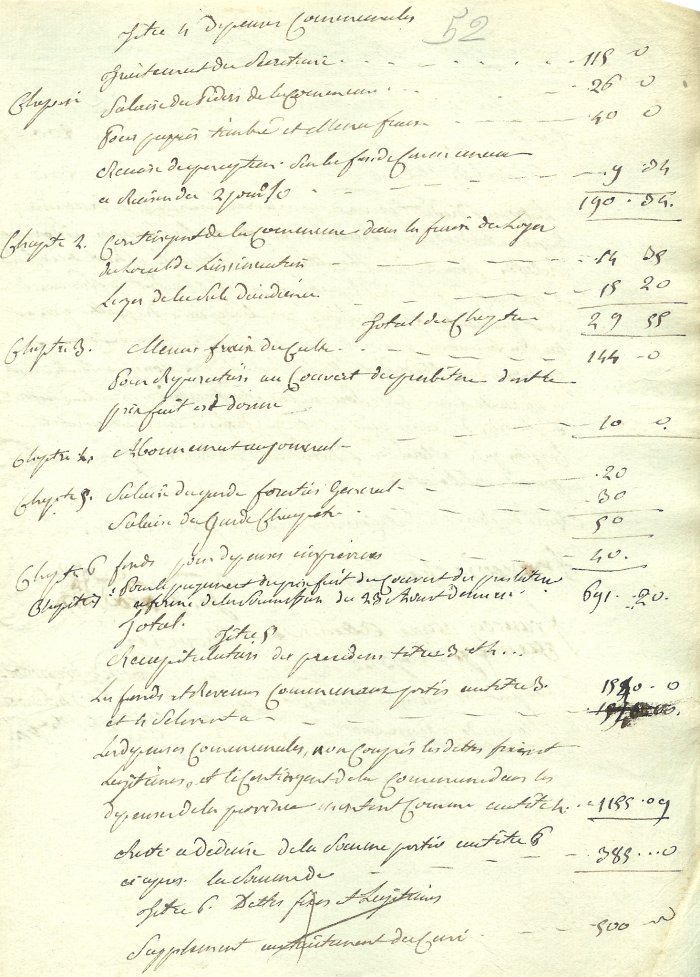 52
Titre 4 Depenses Communales
Traitement du Secretaire 115 0
Chapitre 1 Salaire du Pieton de la Commune 26 0
Pour papier timbré et Menu frais 40 0
Remise du percepteur Sur le fond Commun
a Raison de 2 pour % 9 34
190 . 34.
Chaptre 2. Contingent de la Commune dans les fraix du Loyer
du Local de L'insinuation 14 35
Loyer de la Sale d'audience 15 20
Total du Chaptre 29 55
Chaptre 3. Menus fraix du Culte 144 0
Pour Reparations au Couvert du presbitere dont le
prix fait est donné
Chaptre 4. Abonnement au journal 10 0.
Chaptre 5. Salaire du garde forestier General 20
Salaire du Garde Champetre 30
50
Chaptre 6 fonds pour depenses imprevues 40.
Chaptre 7 Pour le payement du prix fait du Couvert du presbitere
a forme de la Soumission du 28 Avout dernier 691 . 20.
Total.
Titre 5
Recapitulation des precedens titre 3 et 4
Les fonds et Revenus Communaux portés au titre 3.
et 4 S'elevent a 1540 . 0
Les depenses Communales, non Compris les dettes fixes et
Legitimes, et le Contingent de la Commune dans les
depenses de la province montent Comme au titre 4. 1155 . 09
Reste a Deduire de la Somme portée au titre 6
ci apres la Somme de 385 . . 0
Titre 6. Dettes fixes et Legitimes
Supplement au traitement du Curé 500 0